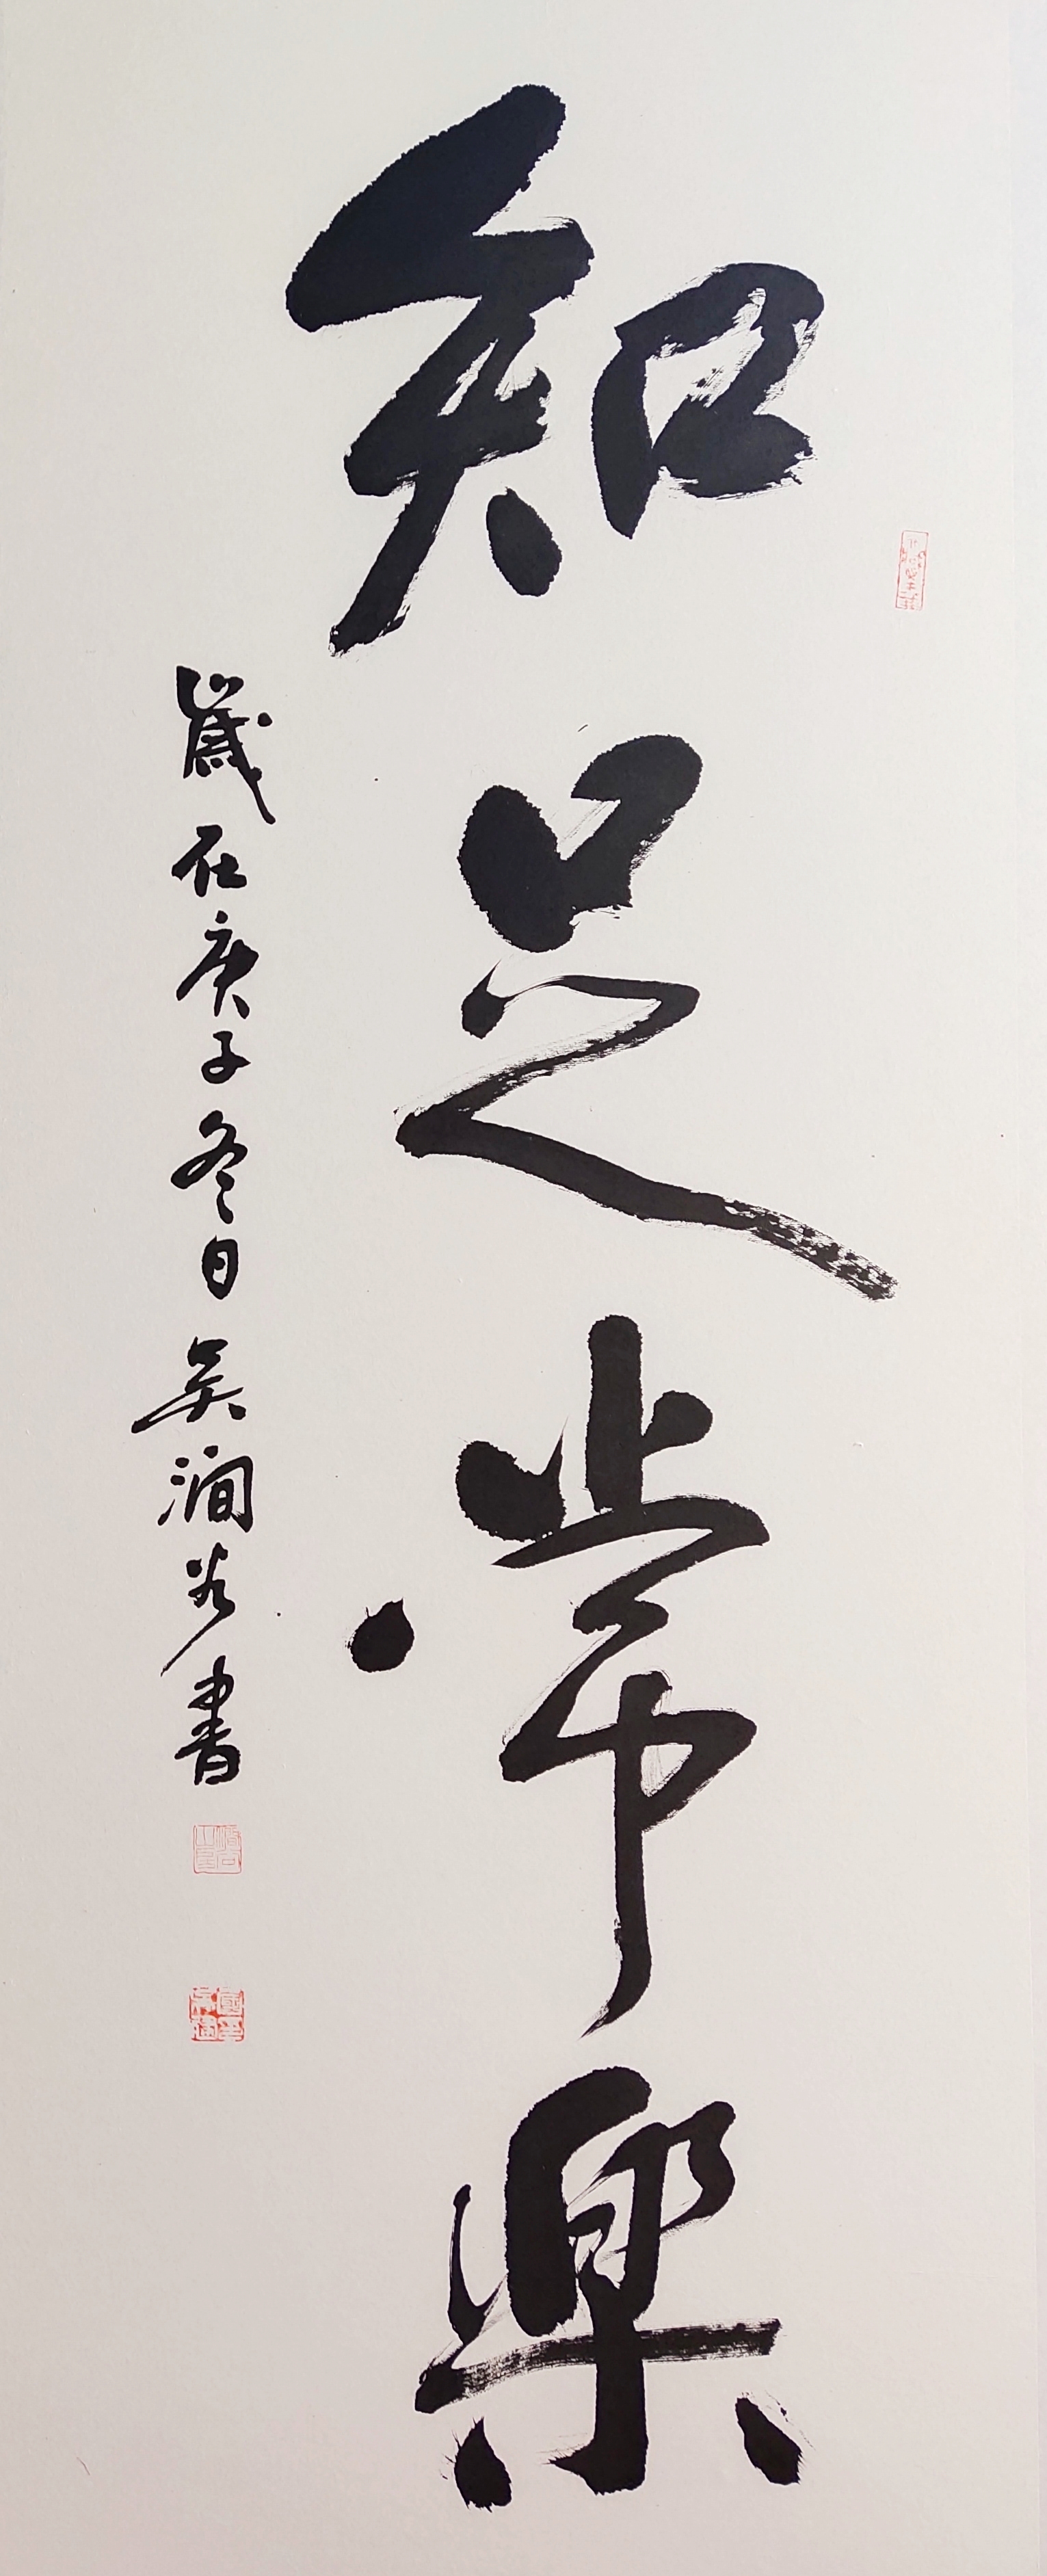 知足常樂
歲在庚子冬日吴澗谷書